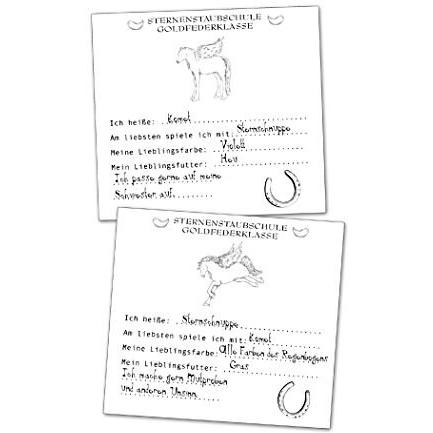 STERNENSTAUBSCHULE
GOLDFEDERKLASSE
Ich heiße: Komet
Am liebsten spiele ich mit: Sternschnuppe
Meine Lieblingsfarbe: Violett
Mein Lieblingsfutter: Heu
Ich passe gerne auf meine
Schwester auf.
STERNENSTAUBSCHULE
GOLDFEDERKLASSE
Ich heiße: Sternschnuppe
Am liebsten spiele ich mit: Komet
Meine Lieblingsfarbe: alle Farben des Regenbogens
Mein Lieblingsfutter: Gras
Ich mache gern Mutproben
und anderen Unsinn